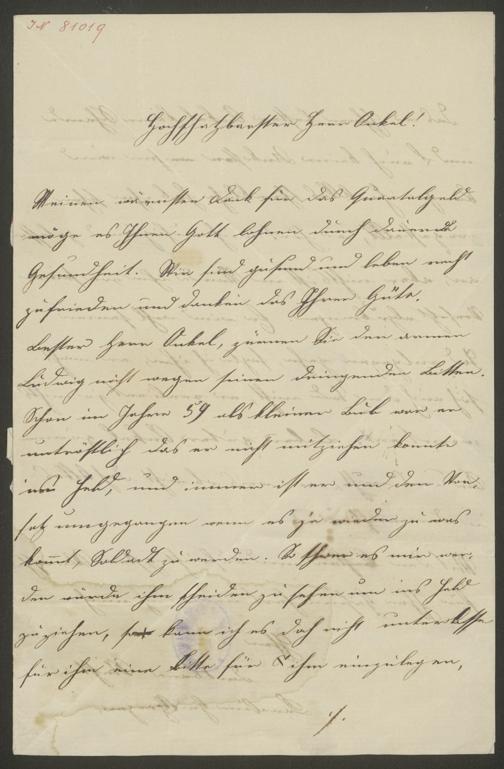 J.N. 81019
Hochschatzbarster Herr Onkel!
Meinen wärmsten Dank für das Quartalgeld
möge es Ihnen Gott lohnen durch dauernde
Gesundheit. Wir sind gesund und leben recht
zufrieden und danken das Ihrer Güte.
Bester Herr Onkel, zürnen Sie den armen
Ludwig nicht wegen seinen dringenden Bitten.
Schon im Jahre 59 als kleiner Bub war er
untröstlich das er nicht mitziehen konnte
ins Feld, und immer ist er mit den Vor,
satz umgegangen wenn es je wieder zu was
kommt, Soldat zu werden. So schwer es mir wer,
den würde ihm scheiden zu sehen um ins Feld
zuziehen, kann ich es doch nicht unterlasse
für ihm eine Bitte für ihm einzulegen,
./.